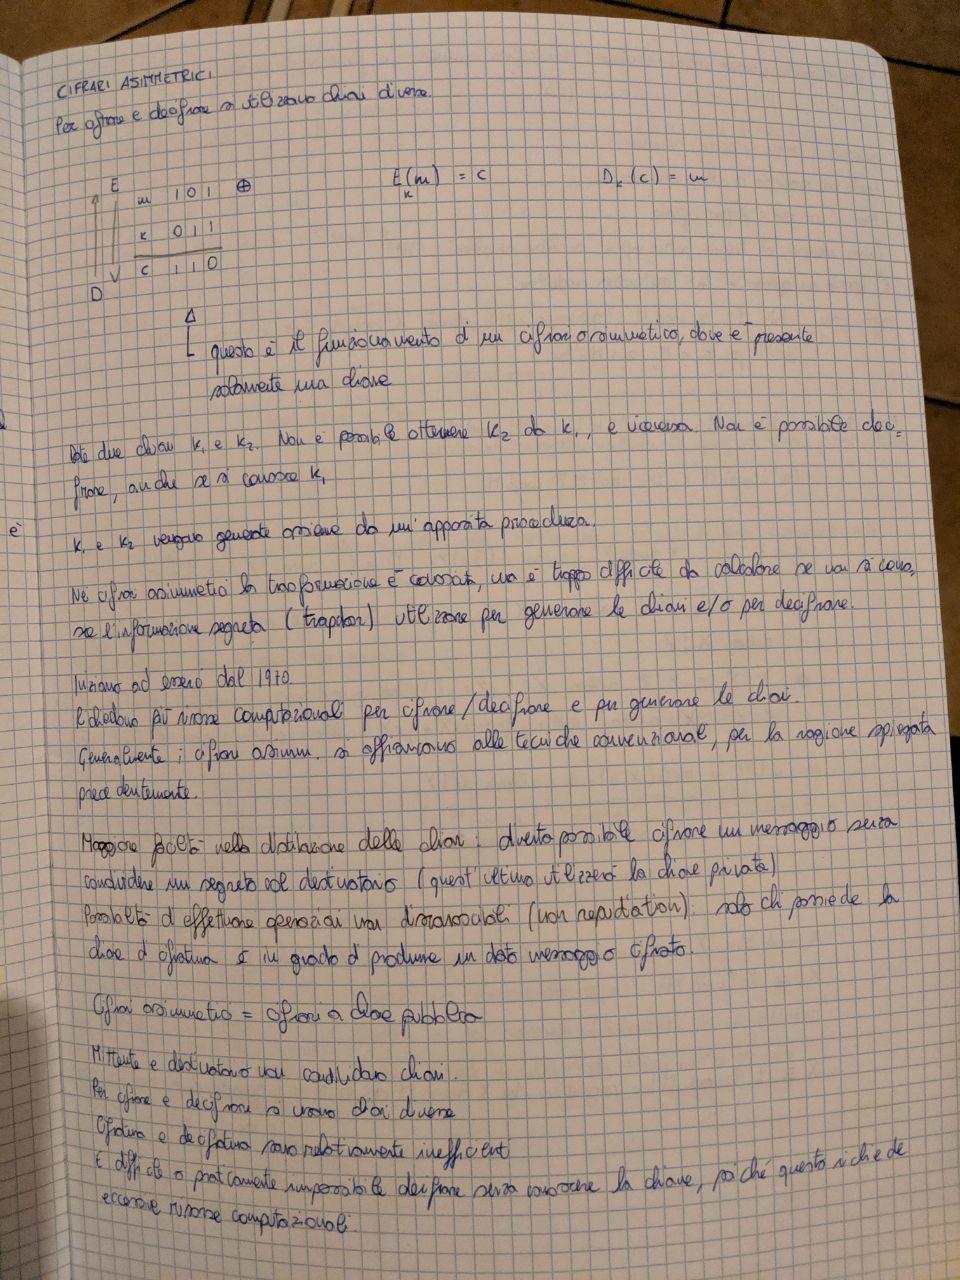 CIFRARI ASIMMETRICI
Per cifrare e decifrare si utilizzano chiavi diverse.
E
m 1 0 1 ⊕
E_k(m) = c
D_k(c) = m
k 0 1 1
c 1 1 0
D
questo è il funzionamento di un cifrario simmetrico, dove è presente
solamente una chiave
Date due chiavi k1 e k2. Non è possibile ottenere k2 da k1, e viceversa. Non è possibile deci-
frare, anche se si conosce k1
è
k1 e k2 vengono generate assieme da un'apposita procedura.
Nei cifrari asimmetrici la trasformazione è conosciuta, ma è troppo difficile da calcolare se non si cono-
sce l'informazione segreta (trapdoor) utilizzare per generare le chiavi e/o per decifrare.
Iniziano ad esserci dal 1970.
Richiedono più risorse computazionali per cifrare/decifrare e per generare le chiavi.
Generalmente i cifrari asimm. si affiancano alle tecniche convenzionali, per la ragione spiegata
precedentemente.
Maggiore facilità nella distribuzione delle chiavi: diventa possibile cifrare un messaggio senza
condividere un segreto col destinatario (quest'ultimo utilizzerà la chiave privata)
Possibilità di effettuare operazioni non disconoscibili (non repudiation): solo chi possiede la
chiave di cifratura è in grado di produrre un dato messaggio cifrato.
Cifrari asimmetrici = cifrari a chiave pubblica
Mittente e destinatario non condividono chiavi.
Per cifrare e decifrare si usano chiavi diverse
Cifratura e decifratura sono relativamente inefficienti
È difficile o praticamente impossibile decifrare senza conoscere la chiave, poiché questo richiede
eccessive risorse computazionali.